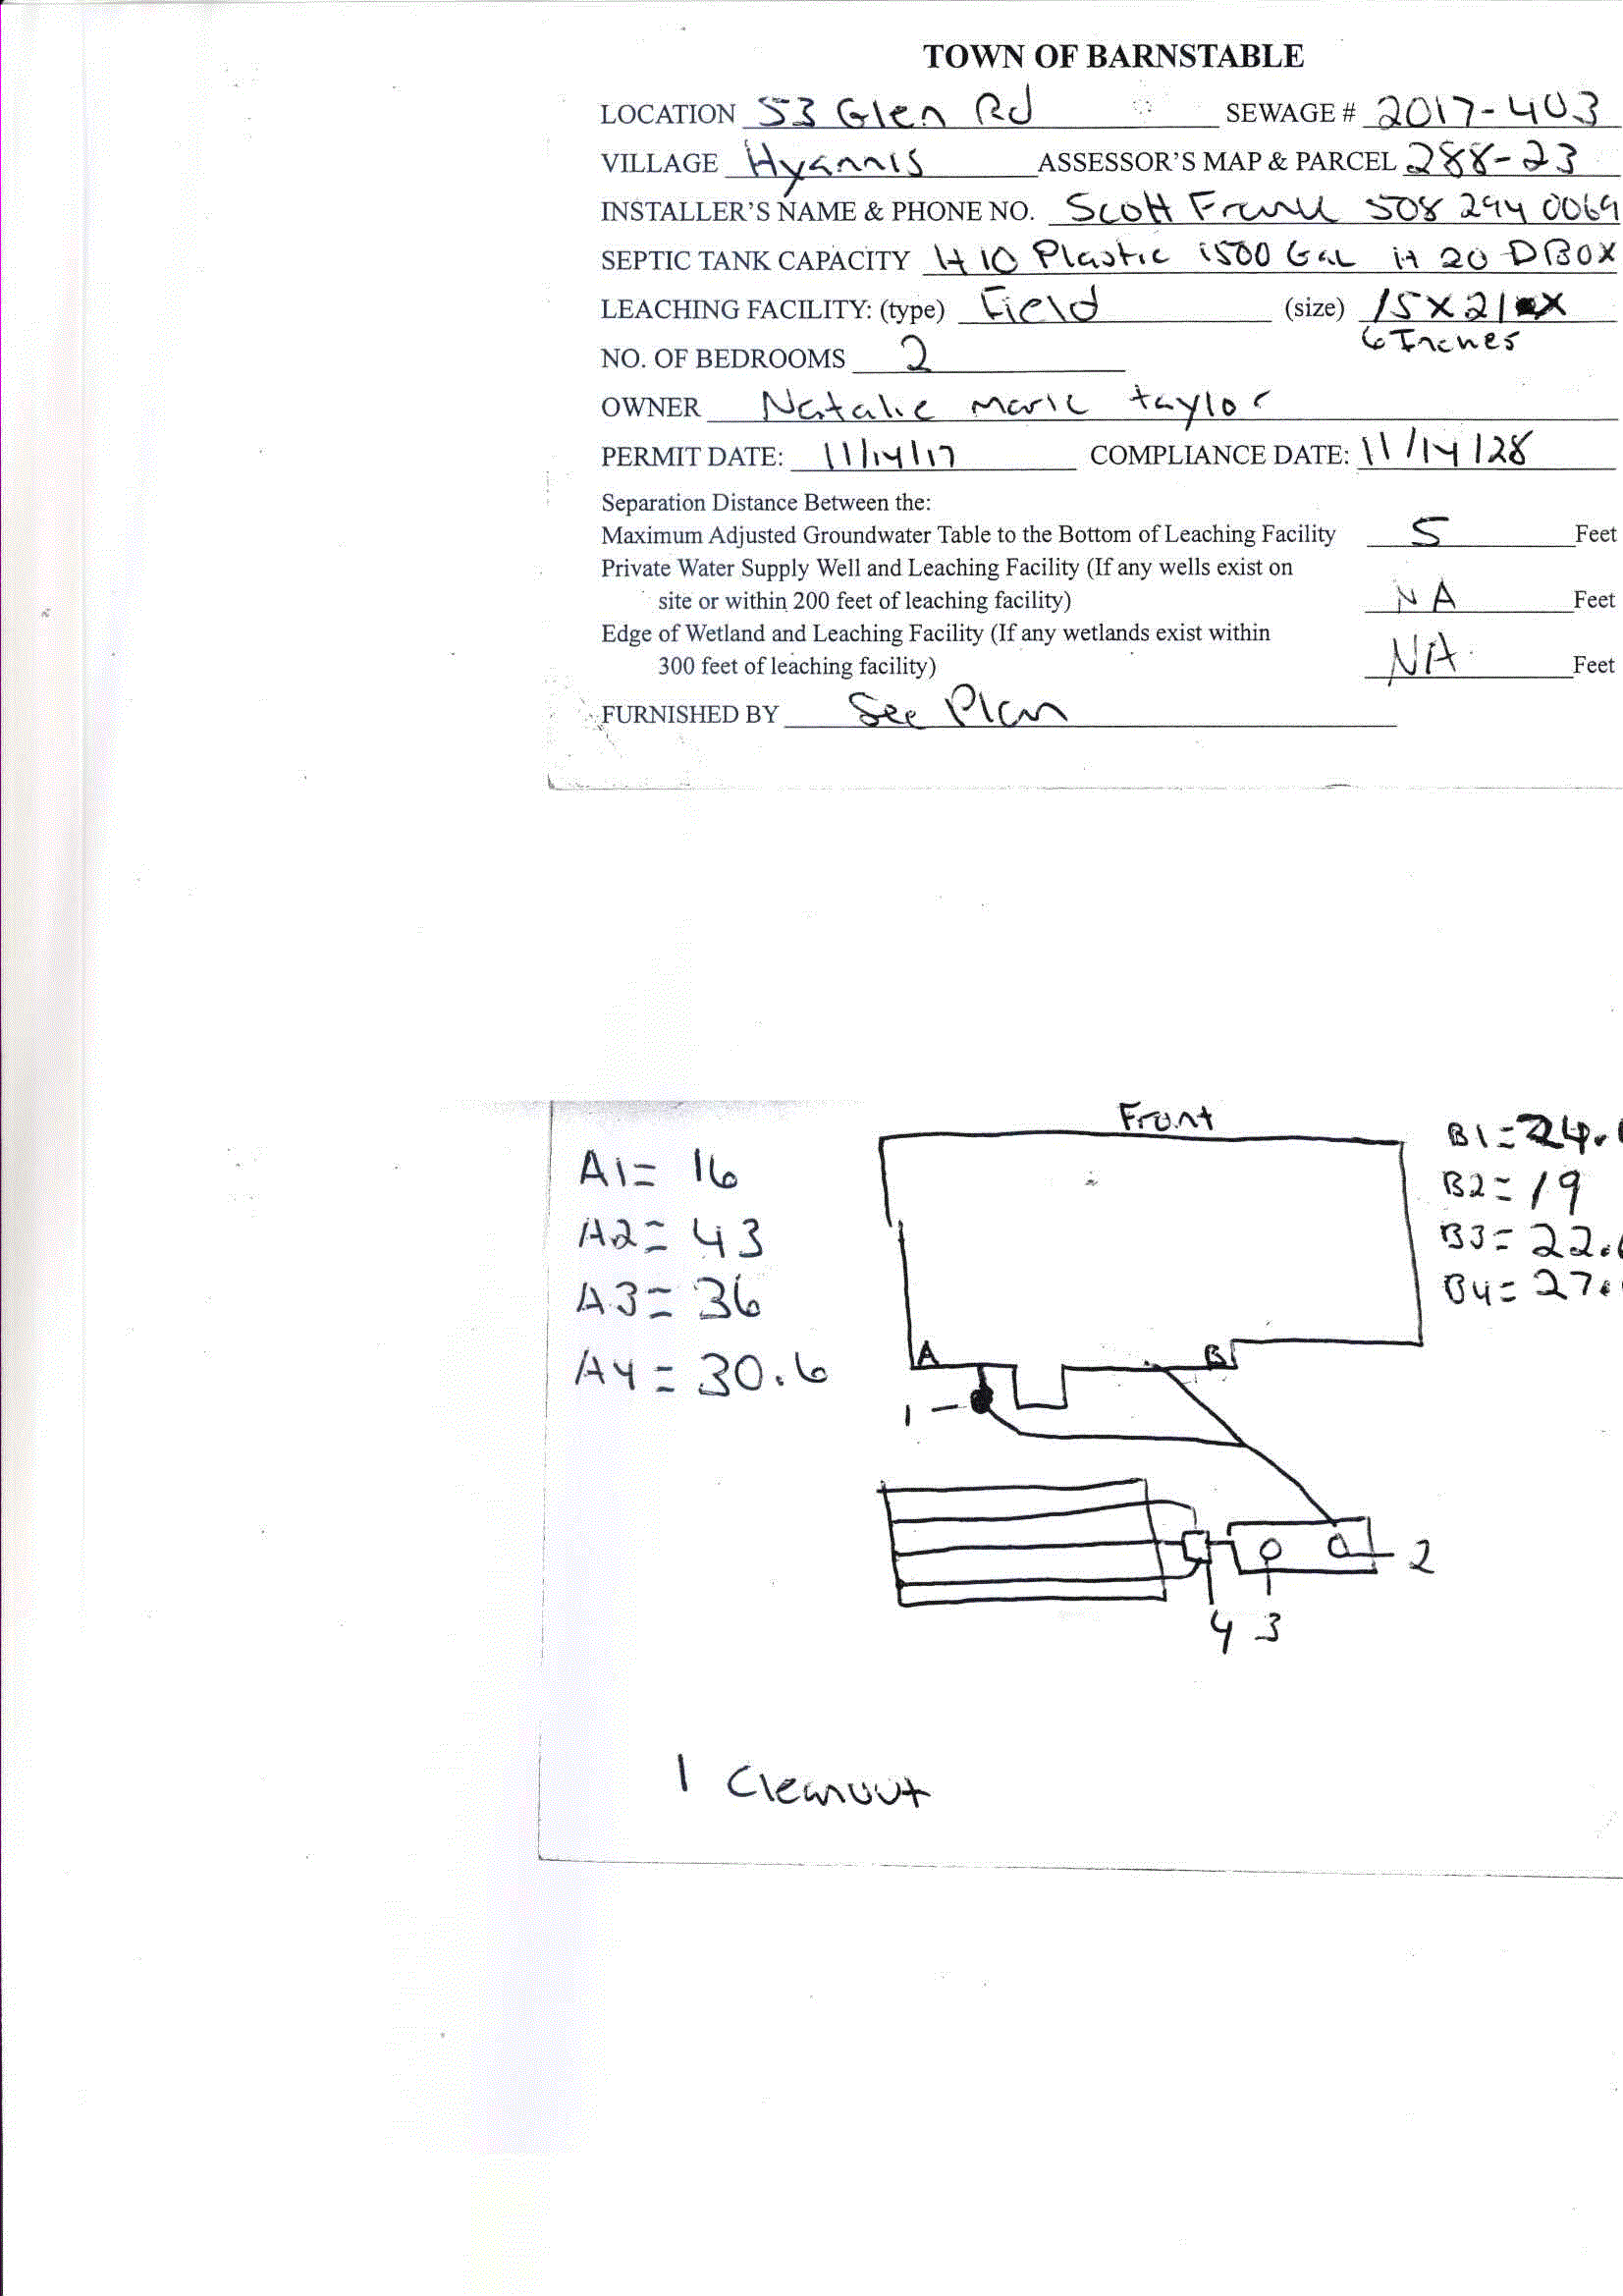 TOWN OF BARNSTABLE
LOCATION 53 Glen Rd SEWAGE # 2017-403
VILLAGE Hyannis ASSESSOR'S MAP & PARCEL 288-23
INSTALLER'S NAME & PHONE NO. Scott Frank 508 294 0069
SEPTIC TANK CAPACITY H10 Plastic 1500 Gal H 20 DBOX
LEACHING FACILITY: (type) Field (size) 15 X 21 X
6 Inches
NO. OF BEDROOMS 2
OWNER Natalie Marie taylor
PERMIT DATE: 11/14/17 COMPLIANCE DATE: 11/14/28
Separation Distance Between the:
Maximum Adjusted Groundwater Table to the Bottom of Leaching Facility 5 Feet
Private Water Supply Well and Leaching Facility (If any wells exist on
site or within 200 feet of leaching facility) NA Feet
Edge of Wetland and Leaching Facility (If any wetlands exist within
300 feet of leaching facility) NA Feet
FURNISHED BY See Plan
Front
A1= 16
A2= 43
A3= 36
A4= 30.6
B1= 24.
B2= 19
B3= 22.
B4= 27.
A
B
1
2
4 3
1 Cleanout